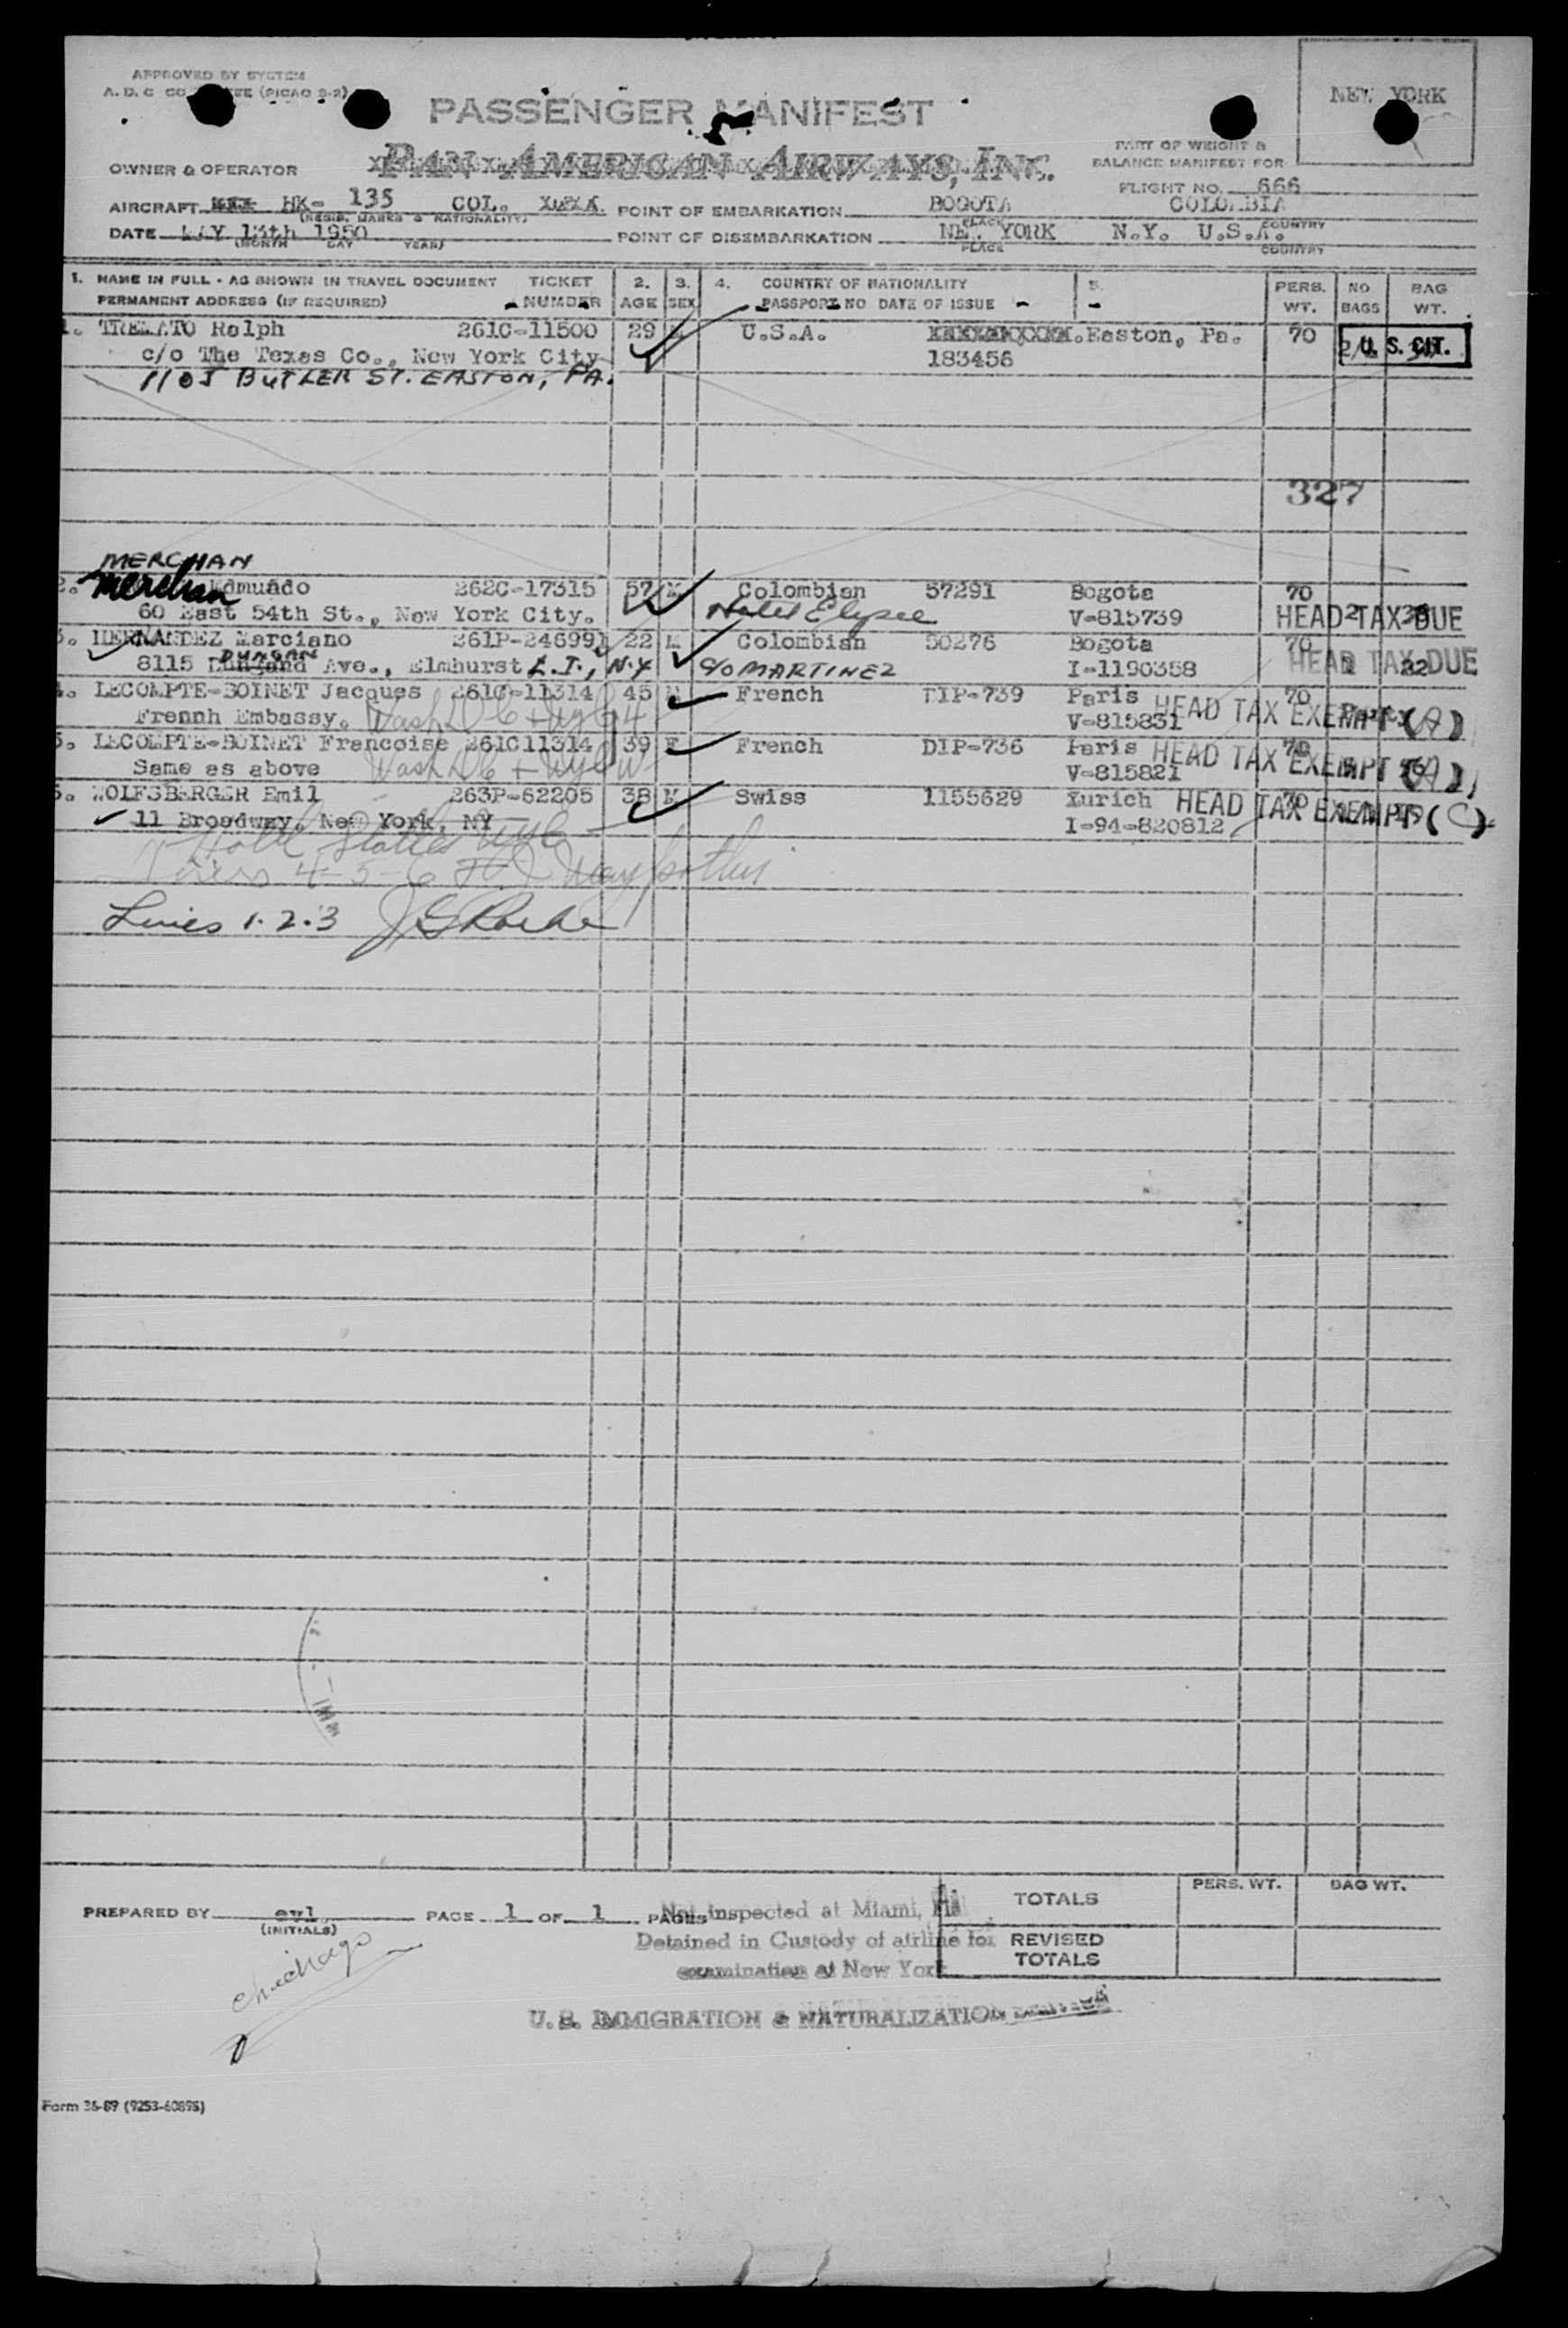 APPROVED BY SYSTEM
A. D. C (PICAO S-2)
NEW YORK
PASSENGER MANIFEST
OWNER & OPERATOR PAN AMERICAN AIRWAYS, INC.
PART OF WEIGHT &
BALANCE MANIFEST FOR
FLIGHT NO. 666
AIRCRAFT HK- 135 COL. POINT OF EMBARKATION BOGOTA COLOMBIA
(REGIS. MARKS & NATIONALITY) PLACE COUNTRY
DATE MAY 13th 1950 POINT OF DISEMBARKATION NEW YORK N.Y. U.S.A.
(MONTH DAY YEAR) PLACE COUNTRY
1. NAME IN FULL - AS SHOWN IN TRAVEL DOCUMENT TICKET 2. 3. 4. COUNTRY OF NATIONALITY 5. PERS. NO BAG
PERMANENT ADDRESS (IF REQUIRED) NUMBER AGE SEX PASSPORT NO DATE OF ISSUE WT. BAGS WT.
1. TREMATO Ralph 261C-11500 29 M U.S.A. Easton, Pa. 70 U. S. CIT.
c/o The Texas Co., New York City 183456
1105 BUTLER ST. EASTON, PA.
327
MERCHAN
2. Merchan Edmundo 262C-17315 57 M Colombian 57291 Bogota 70
60 East 54th St., New York City. Hotel Elysee V-815739 HEAD TAX DUE
3. HERNANDEZ Marciano 261P-24699 22 M Colombian 50276 Bogota 70
DUNGAN
8115 Ave., Elmhurst L.I., N.Y c/o MARTINEZ I-1190358 HEAD TAX DUE
4. LECOMPTE-BOINET Jacques 261C-11314 45 M French DIP-739 Paris 70
Frennh Embassy. Wash DC V-815831 HEAD TAX EXEMPT (A)
5. LECOMPTE-BOINET Francoise 261C11314 39 F French DIP-736 Paris 70
Same as above Wash DC V-815821 HEAD TAX EXEMPT (A)
6. WOLFSBERGER Emil 263P-62205 38 M Swiss 1155629 Zurich 70
11 Broadway, New York, NY I-94-820812 HEAD TAX EXEMPT (C)
Hotel Statler NYC
Lines 4-5-6
Lines 1.2.3
PREPARED BY evl PAGE 1 OF 1 PAGES
(INITIALS)
Not inspected at Miami, Fla
Detained in Custody of airline for
examination at New York
U. S. IMMIGRATION & NATURALIZATION SERVICE
TOTALS
REVISED
TOTALS
PERS. WT. BAG WT.
Form 36-89 (9253-60895)